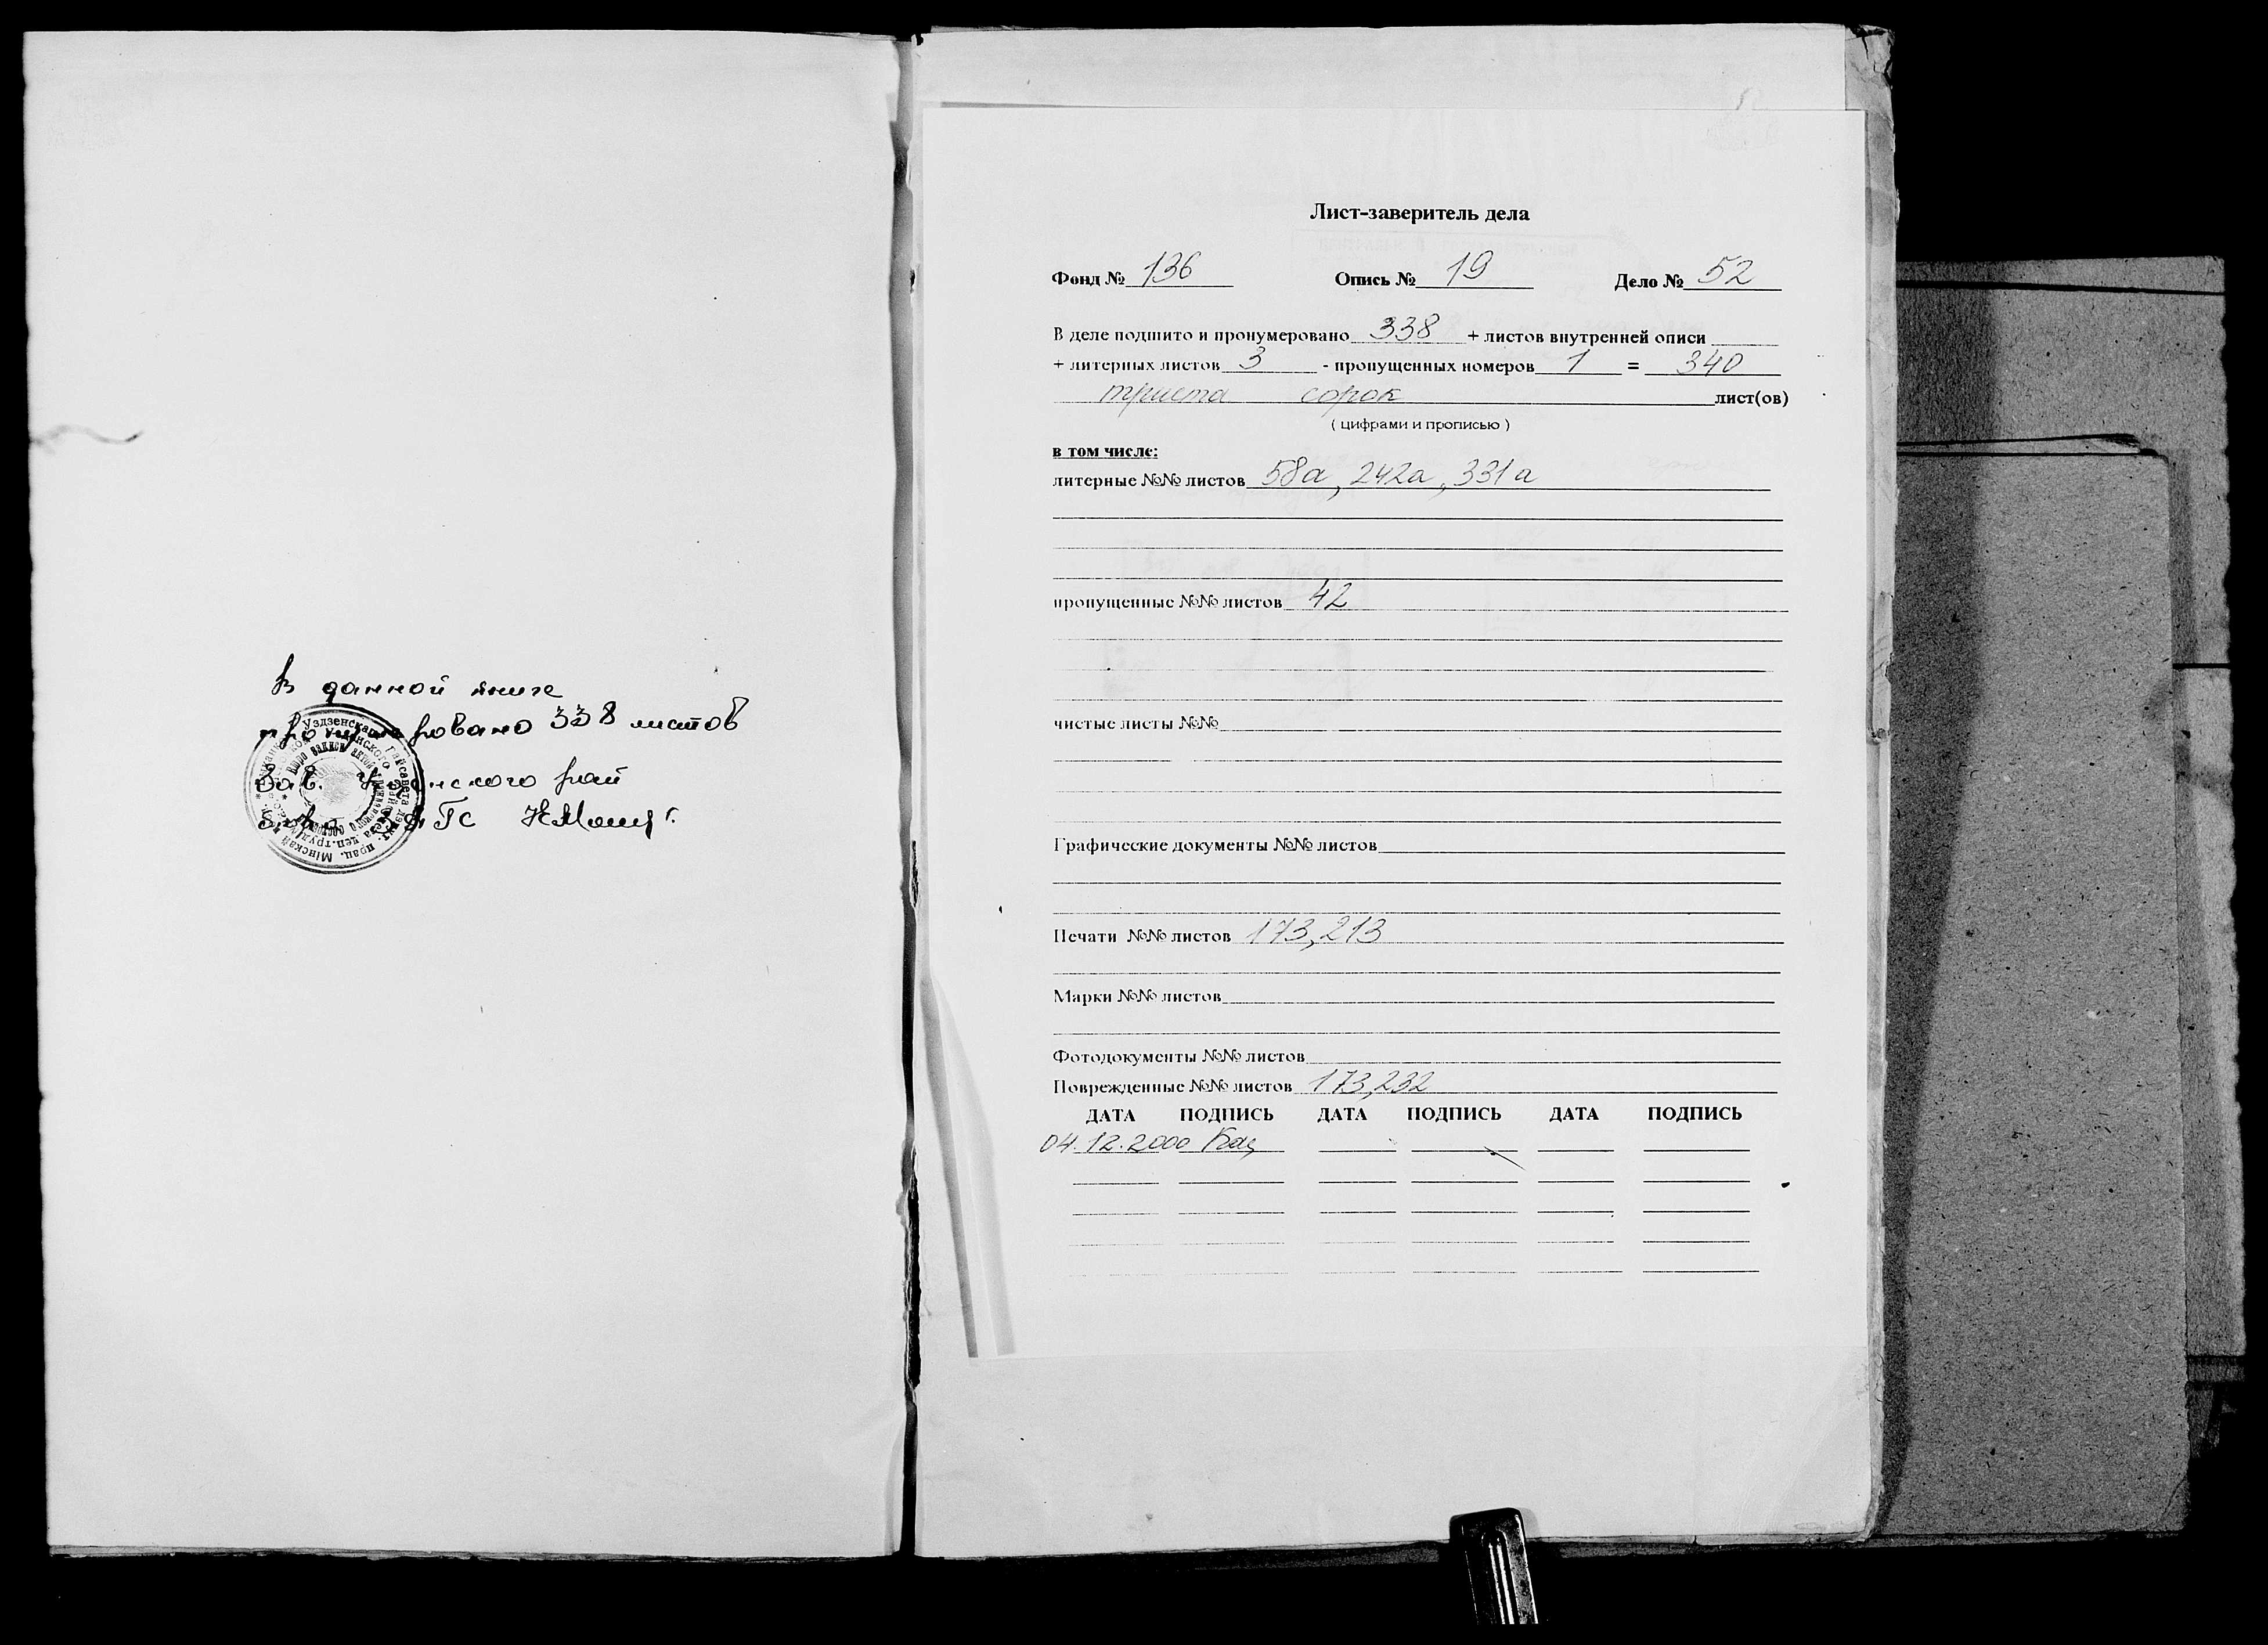 В данной книге
пронумеровано 338 листов
Зав. Узденского рай
бюро ЗАГС
Лист-заверитель дела
Фонд № 136 Опись № 19 Дело № 52
В деле подшито и пронумеровано 338 + листов внутренней описи
+ литерных листов 3 - пропущенных номеров 1 = 340
триста сорок лист(ов)
( цифрами и прописью )
в том числе:
литерные №№ листов 58а, 242а, 331а
пропущенные №№ листов 42
чистые листы №№
Графические документы №№ листов
Печати №№ листов 173, 213
Марки №№ листов
Фотодокументы №№ листов
Поврежденные №№ листов 173, 232
ДАТА ПОДПИСЬ ДАТА ПОДПИСЬ ДАТА ПОДПИСЬ
04.12.2000